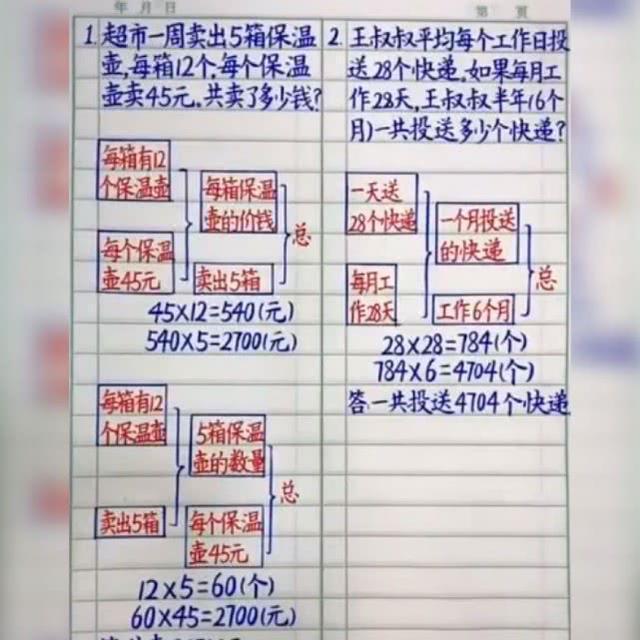 年 月 日
第 页
1.超市一周卖出5箱保温
壶,每箱12个,每个保温
壶卖45元.共卖了多少钱?
每箱有12
个保温壶
每箱保温
壶的价钱
总
每个保温
壶45元
卖出5箱
45×12=540(元)
540×5=2700(元)
每箱有12
个保温壶
5箱保温
壶的数量
总
卖出5箱
每个保温
壶45元
12×5=60(个)
60×45=2700(元)
2.王叔叔平均每个工作日投
送28个快递,如果每月工
作28天,王叔叔半年(6个
月)一共投送多少个快递?
一天送
28个快递
一个月投送
的快递
总
每月工
作28天
工作6个月
28×28=784(个)
784×6=4704(个)
答.一共投送4704个快递